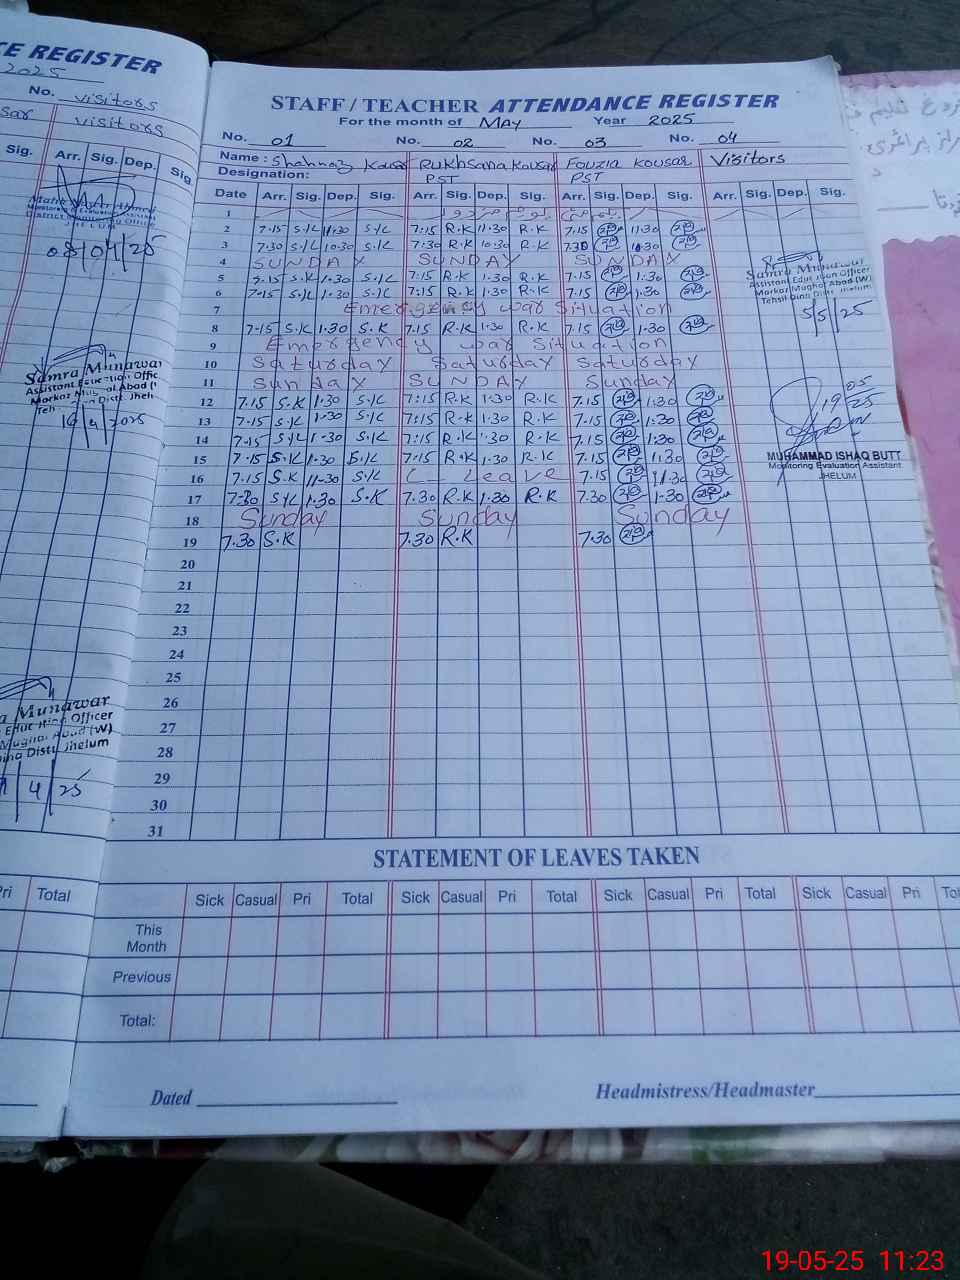 CE REGISTER
2025
No. visitors
sar visitors
Sig. Arr. Sig. Dep. Sig
Monitoring & Evaluation Assistant
District Monitoring Office
JHELUM
08/04/25
Samra Munawar
Assistant Education Offic
Markaz Mughal Abad (
Teh Distt. Jhelum
16/4/2025
a Munawar
Education Officer
Mughal Abad (W)
ina Distt. Jhelum
4/25
Pri Total
STAFF/TEACHER ATTENDANCE REGISTER
For the month of May Year 2025
No. 01 No. 02 No. 03 No. 04
Name: Shahnaz Kousar Rukhsana Kousar Fouzia Kousar Visitors
Designation: PST PST
Date Arr. Sig. Dep. Sig. Arr. Sig. Dep. Sig. Arr. Sig. Dep. Sig. Arr. Sig. Dep. Sig.
1
2 7.15 S.K 11.30 S.K 7:15 R.K 11.30 R.K 7.15 11.30
3 7.30 S.K 10.30 S.K 7:30 R.K 10.30 R.K 7.30 10.30
4 SUNDAY SUNDAY SUNDAY
5 7.15 S.K 1.30 S.K 7.15 R.K 1.30 R.K 7.15 1.30
6 7.15 S.K 1.30 S.K 7.15 R.K 1.30 R.K 7.15 1.30
7 Emergency war Situation
8 7.15 S.K 1.30 S.K 7.15 R.K 1.30 R.K 7.15 1.30
9 Emergency war Situation
10 Saturday Saturday Saturday
11 Sunday SUNDAY Sunday
12 7.15 S.K 1.30 S.K 7:15 R.K 1.30 R.K 7.15 1.30
13 7.15 S.K 1.30 S.K 7:15 R.K 1.30 R.K 7.15 1.30
14 7.15 S.K 1.30 S.K 7:15 R.K 1.30 R.K 7.15 1.30
15 7.15 S.K 1.30 S.K 7:15 R.K 1.30 R.K 7.15 11.30
16 7.15 S.K 11.30 S.K Leave 7.15 11.30
17 7.30 S.K 1.30 S.K 7.30 R.K 1.30 R.K 7.30 1.30
18 Sunday Sunday Sunday
19 7.30 S.K 7.30 R.K 7.30
20
21
22
23
24
25
26
27
28
29
30
31
Samra Munawar
Assistant Education Officer
Markaz Mughal Abad (W)
Tehsil Dina Distt. Jhelum
5/5/25
19/05/25
MUHAMMAD ISHAQ BUTT
Monitoring Evaluation Assistant
JHELUM
STATEMENT OF LEAVES TAKEN
Sick Casual Pri Total Sick Casual Pri Total Sick Casual Pri Total Sick Casual Pri To
This Month
Previous
Total:
Dated Headmistress/Headmaster
19-05-25 11:23